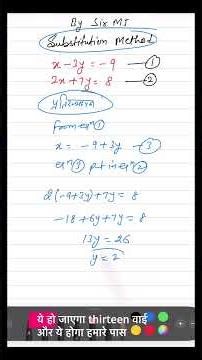 By Six MI
Substitution Method
x - 3y = -9 —①
2x + 7y = 8 —②
प्रतिस्थापन
from eqⁿ ①
x = -9+3y —③
eqⁿ ③ put in eqⁿ ②
2(-9+3y)+7y = 8
-18+6y+7y = 8
13y = 26
y = 2
ये हो जाएगा thirteen वाई
और ये होगा हमारे पास